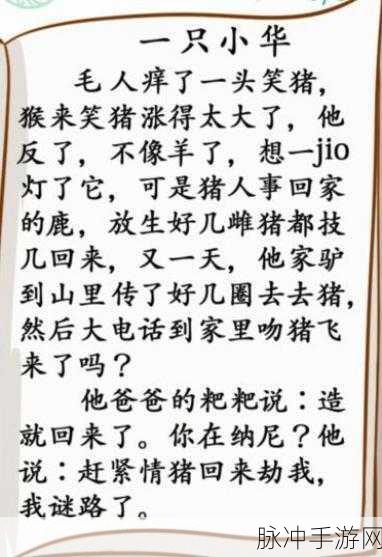 一只小华
毛人痒了一头笑猪，
猴来笑猪涨得太大了，他
反了，不像羊了，想一jio
灯了它，可是猪人事回家
的鹿，放生好几雌猪都技
几回来，又一天，他家驴
到山里传了好几圈去去猪，
然后大电话到家里吻猪飞
来了吗？
他爸爸的粑粑说：造
就回来了。你在纳尼？他
说：赶紧情猪回来劫我，
我谜路了。
脉冲手游网